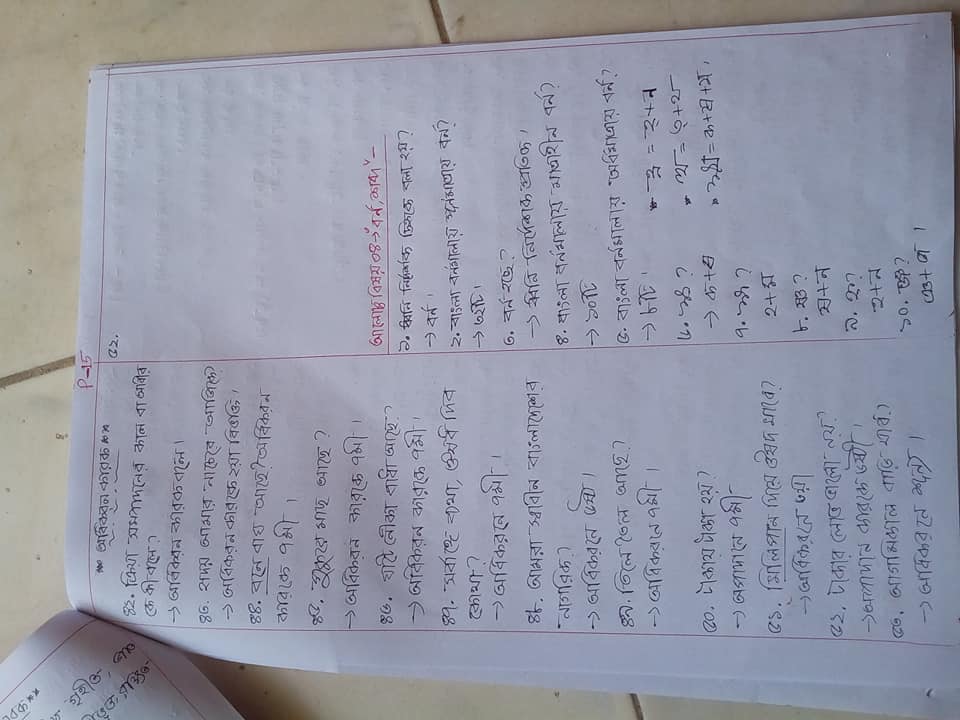 P-15
** অধিকরন কারক **
৪২. ক্রিয়া সম্পাদনের কাল বা আধার
কে কী বলে?
→ অধিকরন কারক বলে।
৪৩. হৃদয় আমার নাচেরে আজিকে?
→ অধিকরন কারকে ২য়া বিভক্তি।
৪৪. বনে বাঘ আছে? অধিকরন
কারকে ৭মী।
৪৫. পুকুরে মাছ আছে?
→ অধিকরন কারকে ৭মী।
৪৬. ঘাটে নৌকা বাধা আছে?
→ অধিকরন কারকে ৭মী।
৪৭. সর্বাঙ্গে ব্যথা, ঔষধ দিব
কোথা?
→ অধিকরনে ৭মী।
৪৮. আমরা স্বাধীন বাংলাদেশের
নাগরিক?
→ অধিকরনে ৬ষ্ঠী।
৪৯. তিলে তৈল আছে?
→ অধিকরনে ৭মী।
৫০. টাকায় টাকা হয়?
→ অপাদানে ৭মী
৫১. দিয়ে ঔষদ যাবে?
→ অধিকরনে ৩য়া
৫২. টাকার লোভ ভালো নয়?
→ অপাদান কারকে ৬ষ্ঠী।
৫৩. আগামিকাল বাড়ি যাব?
→ অধিকরনে শূন্য।
৫২.
আলোচ্য বিষয় ০৪→ "বর্ন, শব্দ" –
১. ধ্বনি নির্দেশক চিহ্নকে বলা হয়?
→ বর্ন।
২. বাংলা বর্নমালায় পূর্নমাত্রায় বর্ন?
→ ৩২টি।
৩. বর্ন হচ্ছে?
→ ধ্বনি নির্দেশক প্রতিক।
৪. বাংলা বর্নমালায় মাত্রাহীন বর্ন?
→ ১০টি
৫. বাংলা বর্নমালায় অর্ধমাত্রায় বর্ন?
→ ৮টি। • হ্ন = হ্+ন
৬. ক্ষ? • ত্থ = ত্+থ
→ ক+ষ • ক্ষ্ম = ক+ষ+ম।
৭. হ্ম?
হ+ম
৮. ষ্ণ?
ষ+ন
৯. হ্ন?
হ+ন
১০. ঞ্জ?
ঞ+জ।